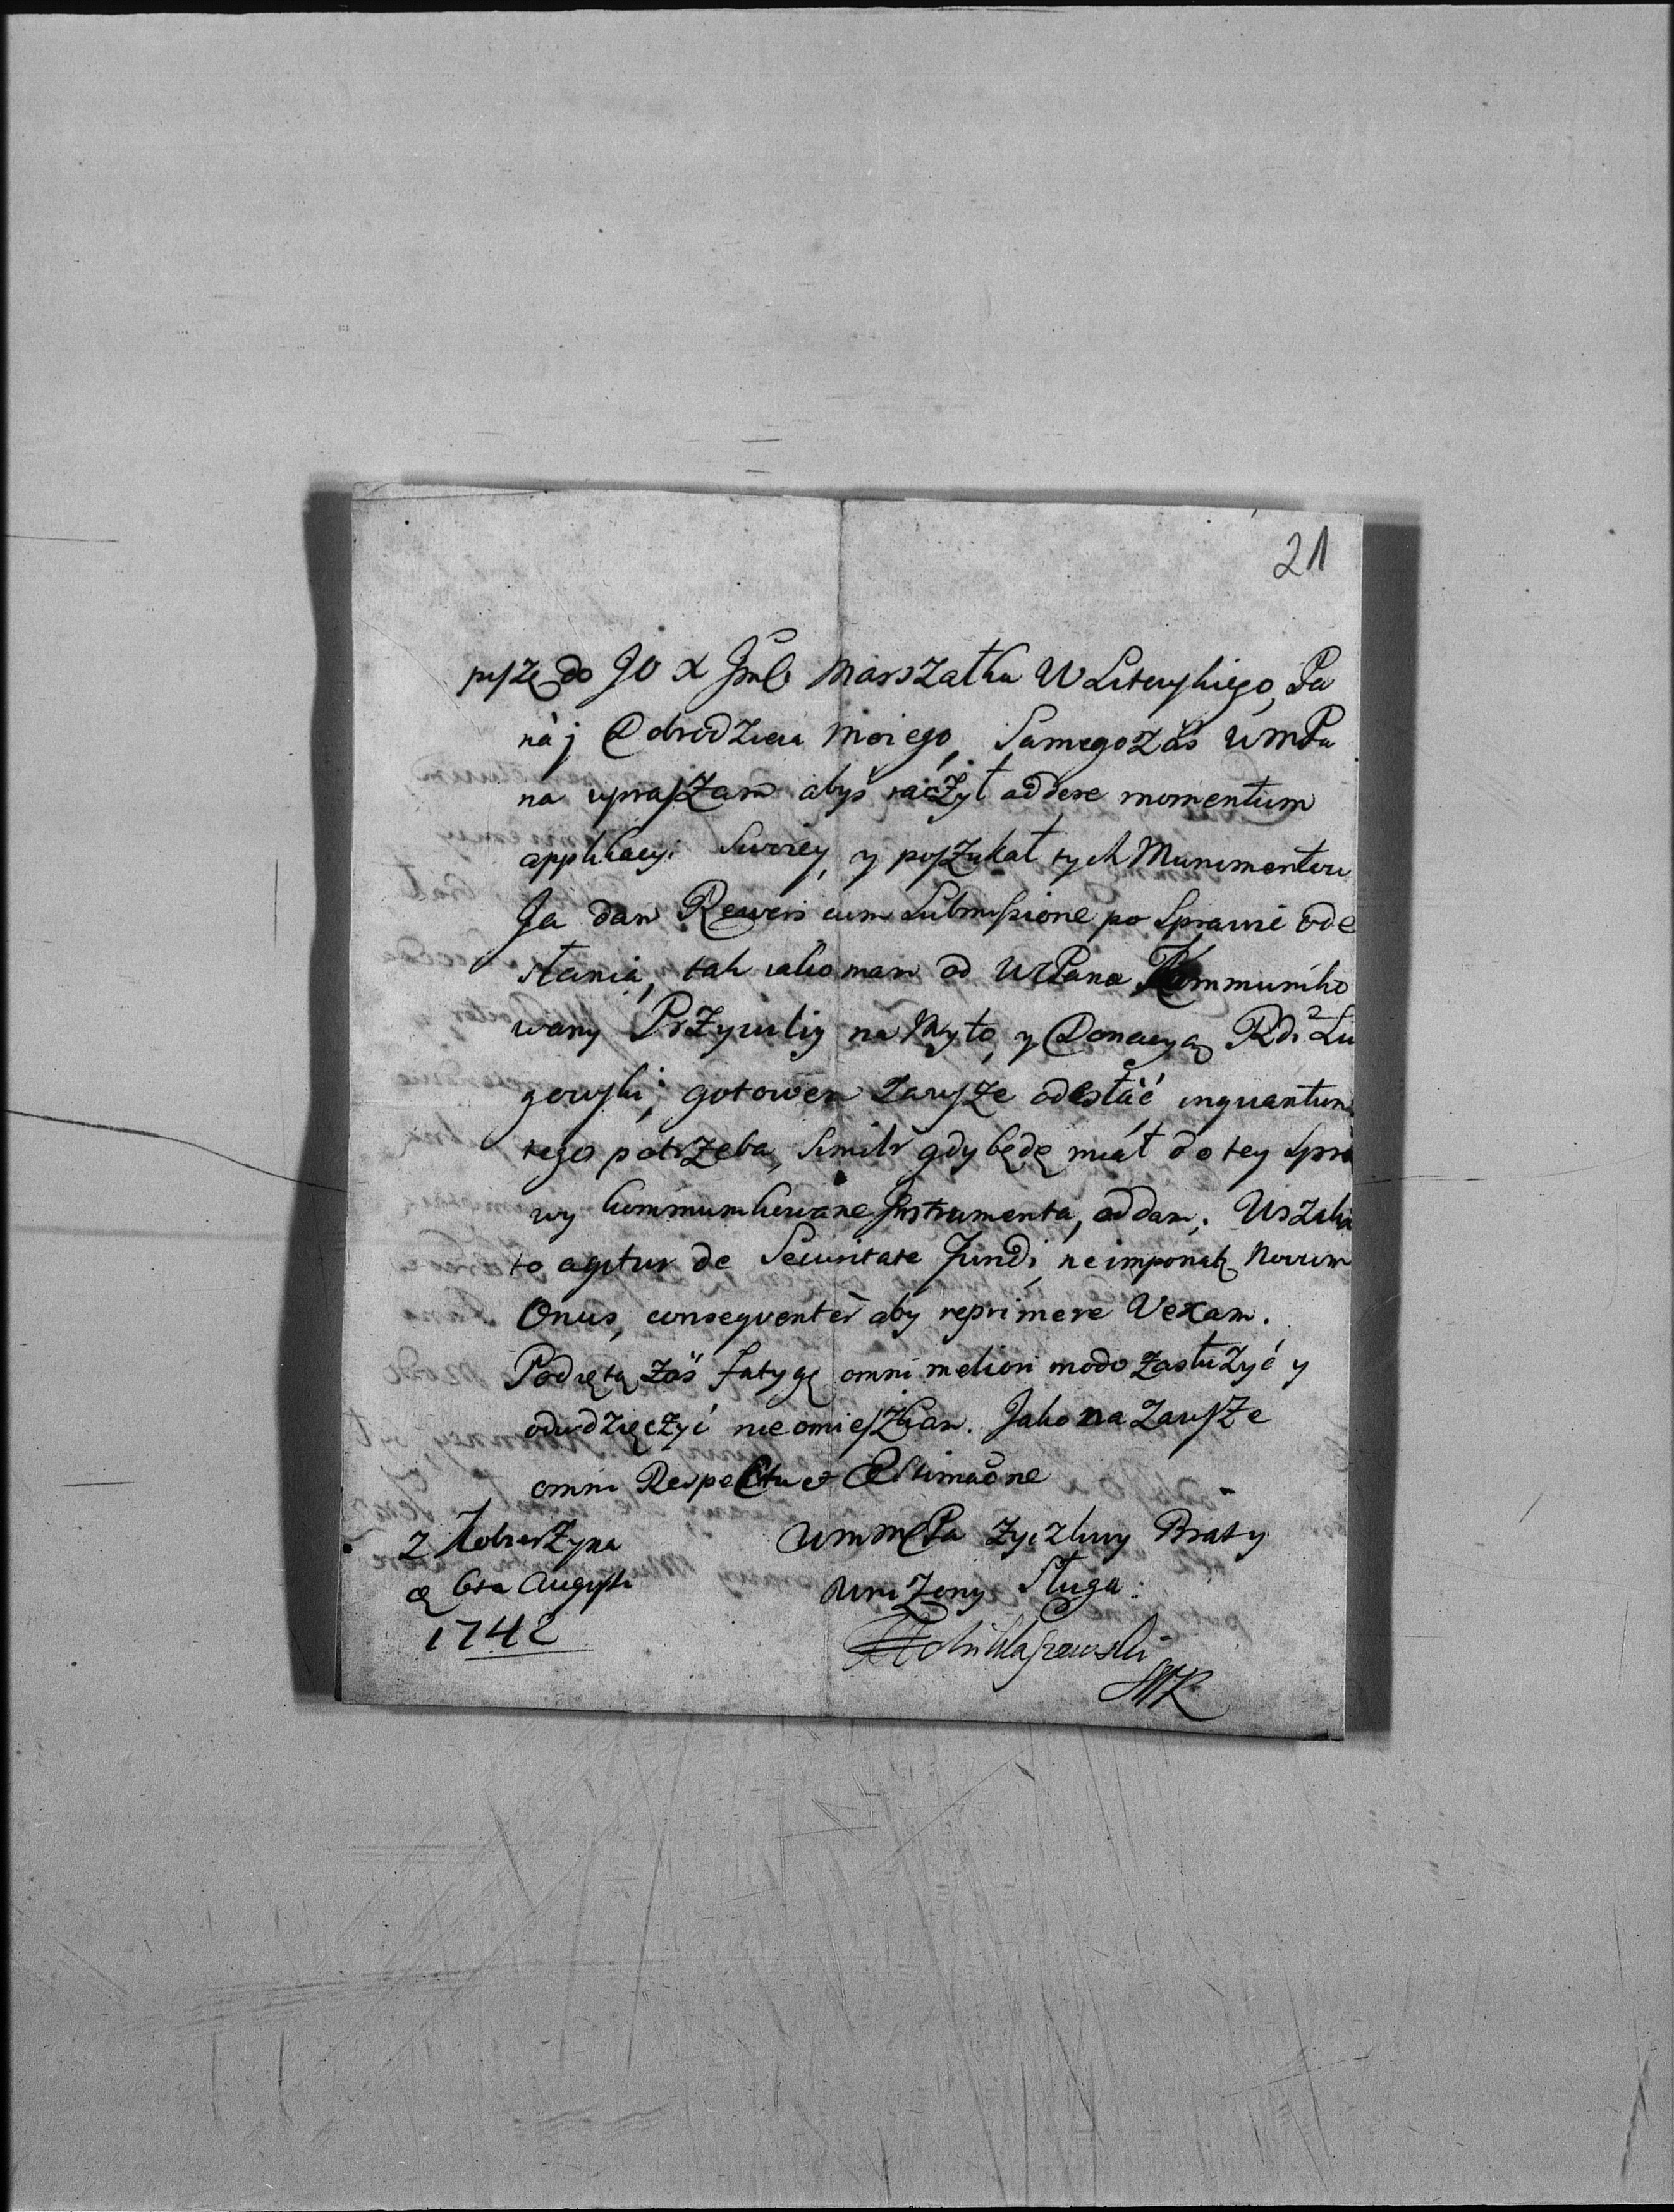 21
piszę do JO X Jmć Marszałka W Litewskiego, Pa
na j Dobrodzieia moiego, Samegozaś WmPa
na upraszam abyś raczył addere momentum
applikacyi Swoiey, y poszukał tych Munimentow
Ja dam Rewers cum Submissione po Sprawie ode
słania, tak iako mam od WPana Kommuniko
wany Przywiley na Myto, y Donacyą
gotowem zawsze odesłać inquantum
tego potrzeba, Similr gdy będę miał do tey Spra
wy kommunikowane Instrumenta, oddam. Wszak
to agitur de Securitate Fundi, ne imponat Novum
Onus, conseqventer aby reprimere Vexam.
Podiętą zaś fatygę omni meliori modo zasłużyć y
odwdzięczyć nie omieszkam. Jako na zawsze
omni Respectu et Æstimaone
WmMPa życzliwy Brat y
uniżony Sługa:
Z Kobierzyna
6ta Augusti
1742